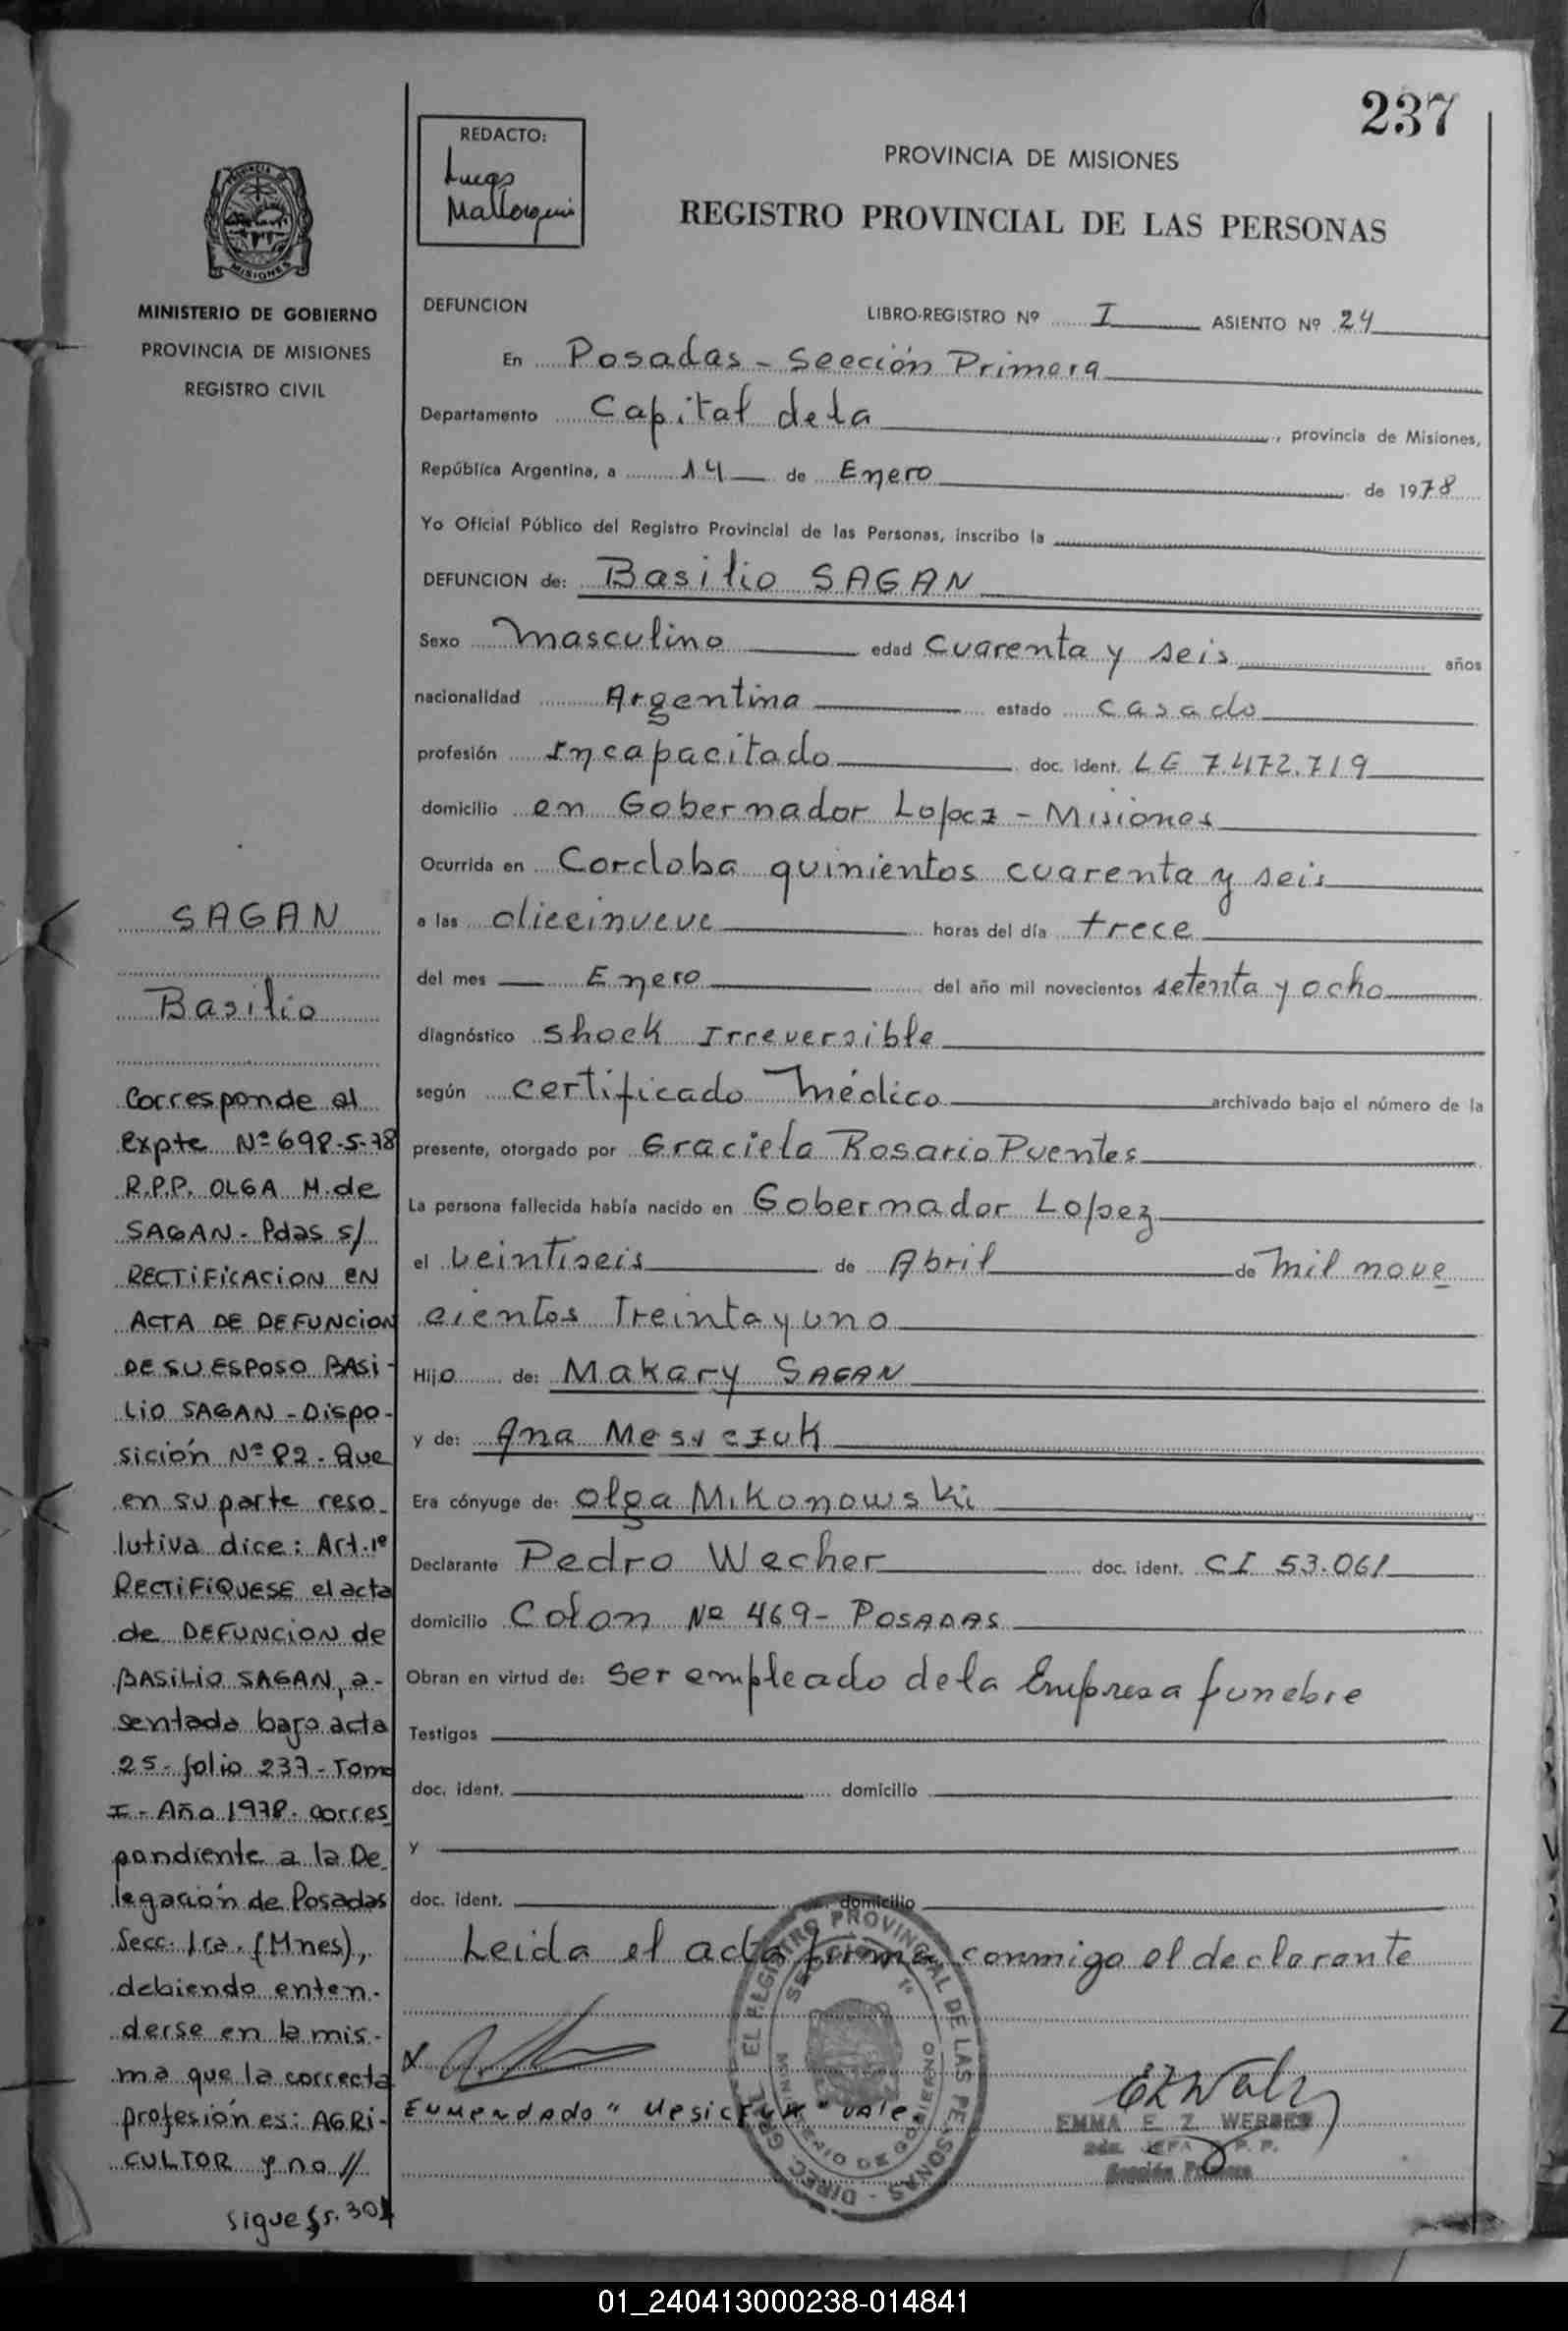 237
REDACTO:
Lucas
Mallorquin
PROVINCIA DE MISIONES
REGISTRO PROVINCIAL DE LAS PERSONAS
PROVINCIA DE
MISIONES
MINISTERIO DE GOBIERNO
PROVINCIA DE MISIONES
REGISTRO CIVIL
DEFUNCION
LIBRO-REGISTRO Nº I ASIENTO Nº 24
En Posadas - Sección Primera
Departamento Capital de la , provincia de Misiones,
República Argentina, a 14 de Enero de 1978
Yo Oficial Público del Registro Provincial de las Personas, inscribo la
DEFUNCION de: Basilio SAGAN
Sexo Masculino edad Cuarenta y seis años
nacionalidad Argentina estado casado
profesión Incapacitado doc. ident. LE 7.472.719
domicilio en Gobernador Lopez - Misiones
Ocurrida en Cordoba quinientos cuarenta y seis
a las diecinueve horas del día trece
del mes Enero del año mil novecientos setenta y ocho
diagnóstico Shock Irreversible
según certificado Médico archivado bajo el número de la
presente, otorgado por Graciela Rosario Puentes
La persona fallecida había nacido en Gobernador Lopez
el veintiseis de Abril de Mil nove
cientos Treinta y uno
Hijo de: Makary SAGAN
y de: Ana Mesyczuk
Era cónyuge de: Olga Mikonowski
Declarante Pedro Wecher doc. ident. CI 53.061
domicilio Colon Nº 469 - POSADAS
Obran en virtud de: Ser empleado de la Empresa funebre
Testigos
doc. ident. domicilio
y
doc. ident. domicilio
Leida el acta firma conmigo el declarante
Enmendado " " Vale
EMMA E. Z. WERBES
JEFA R. P. P.
Sección Primera
DIREC. GRAL. DEL REGISTRO PROVINCIAL DE LAS PERSONAS
SECCION 1ª
MINISTERIO DE GOBIERNO
SAGAN
Basilio
Corresponde al
Expte Nº 698-S-78
R.P.P. OLGA M. de
SAGAN - Pdas s/
RECTIFICACION EN
ACTA DE DEFUNCION
DE SU ESPOSO BASI-
LIO SAGAN - Dispo-
sición Nº 82. Que
en su parte reso-
lutiva dice: Art. 1º
RECTIFIQUESE el acta
de DEFUNCION de
BASILIO SAGAN, a-
sentada bajo acta
25 - folio 237 - Tomo
I - Año 1978. corres
pondiente a la De
legación de Posadas
Secc. 1ra. (Mnes),
debiendo enten-
derse en la mis-
ma que la correcta
profesión es: AGRI-
CULTOR y no //
sigue fs. 301
01_240413000238-014841